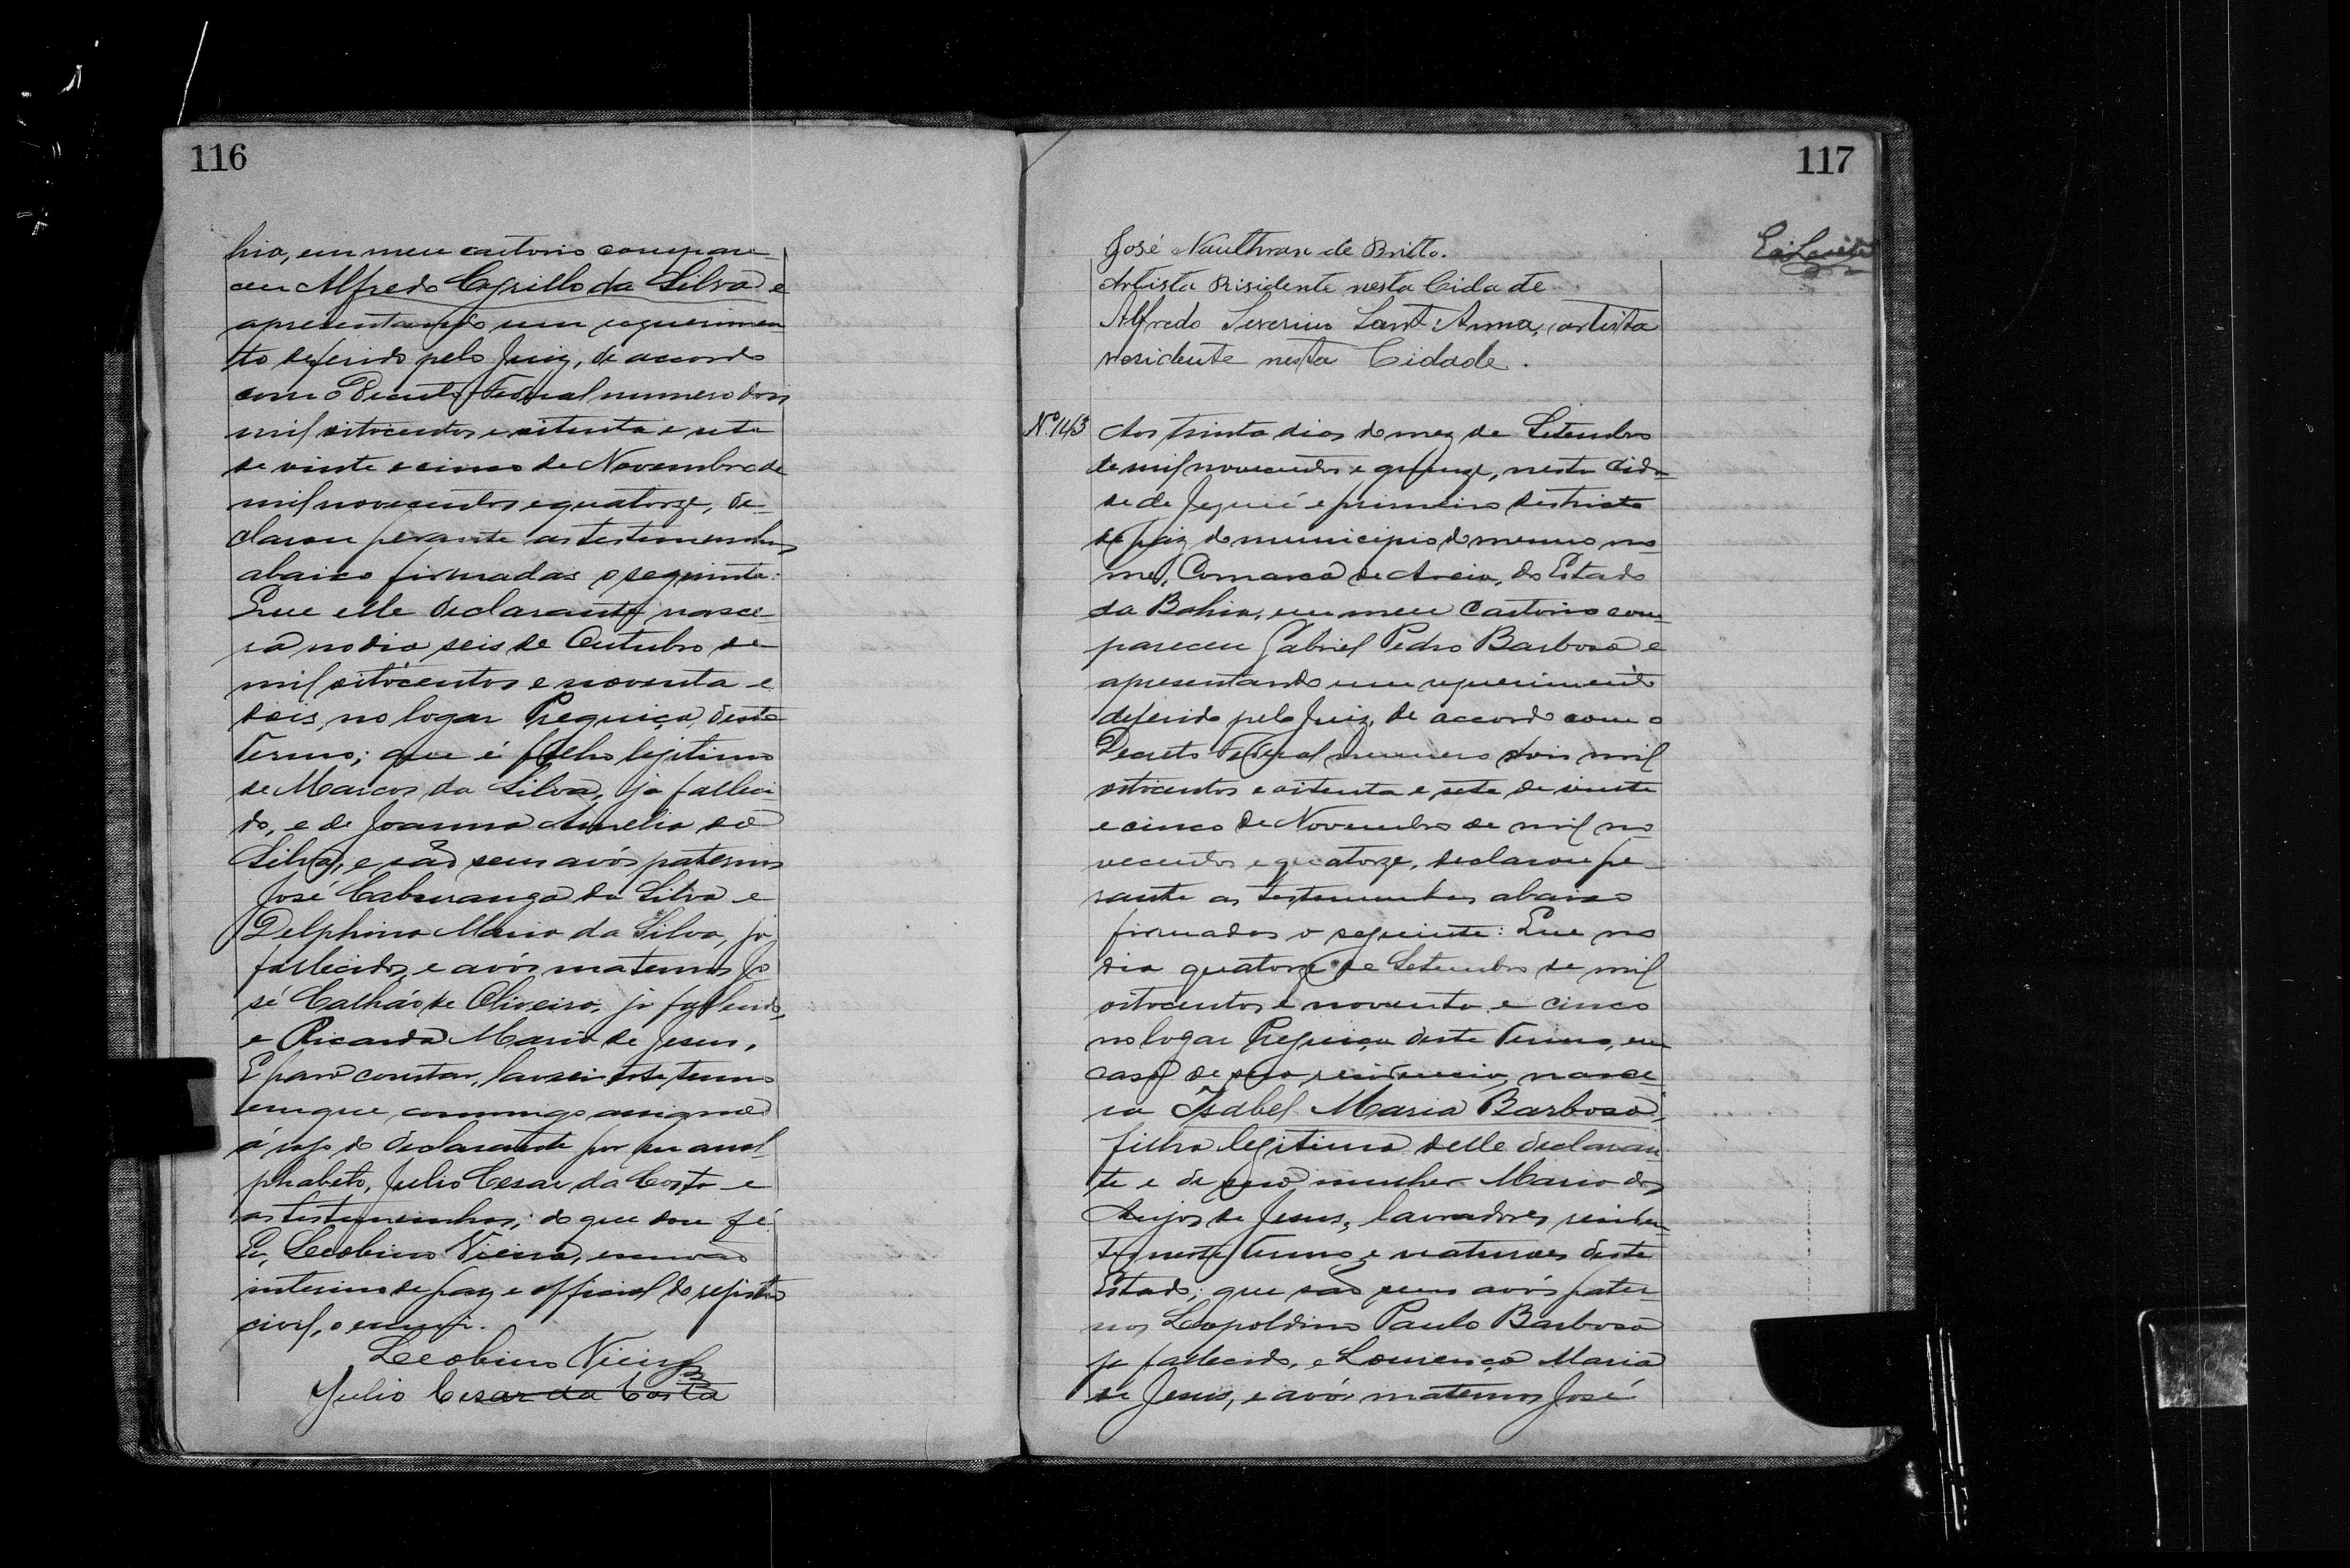 116
hia, em meu cartorio compare-
ceu Alfredo Cyrillo da Silva e
apresentando um requerimen
to deferido pelo Juiz, de accordo
com o Decreto Federal numero dois
mil oitocentos e oitenta e sete
de vinte e cinco de Novembro de
mil novecentos e quatorze, de-
clarou perante as testemunhas
abaixo firmadas o seguinte:
Que elle declarante nasce-
ra no dia seis de Outubro de
mil oitocentos e noventa e
dois, no logar Preguiça, deste
Termo; que é filho legitimo
de Marcos da Silva, ja falleci
do, e de Joanna Amelia da
Silva, e são seus avós paternos
José da Silva e
Delphina Maria da Silva, ja
fallecidos, e avós maternos Jo
sé Calhão de Oliveira, ja fallecido,
e Ricarda Maria de Jesus.
E para constar, lavrei este termo
em que commigo assigna
á rogo do declarante por ser anal
phabeto, Julio Cesar da Costa e
as testemunhas, do que dou fé.
Eu, Leobino Vieira, escrivão
interino de paz e official do registro
civil, o escrevi.
Leobino Vieira
Julio Cesar da Costa
117
José de Britto.
Artista Residente nesta Cidade
Alfredo Severino Sant'Anna, artista
residente nesta Cidade.
Nº 143 Aos trinta dias do mez de Setembro
de mil novecentos e quinze, nesta cida-
de de Jequié e primeiro districto
de paz do municipio do mesmo no-
me, Comarca de Areia, do Estado
da Bahia, em meu Cartorio com
pareceu Gabriel Pedro Barbosa e
apresentando um requerimento
deferido pelo Juiz, de accordo com o
Decreto Federal numero dois mil
oitocentos e oitenta e sete de vinte
e cinco de Novembro de mil no
vecentos e quatorze, declarou pe-
rante as testemunhas abaixo
firmadas o seguinte: Que no
dia quatorze de Setembro de mil
oitocentos e noventa e cinco
no logar Preguiça deste Termo, em
casa de sua residencia, nasce-
ra Isabel Maria Barbosa,
filha legitima delle declaran
te e de sua mulher Maria dos
Anjos de Jesus, lavradores, residen-
tes neste Termo e naturaes deste
Estado; que são seus avós pater-
nos Leopoldino Paulo Barbosa
ja fallecido, e Lourença Maria
de Jesus, e avós maternos José